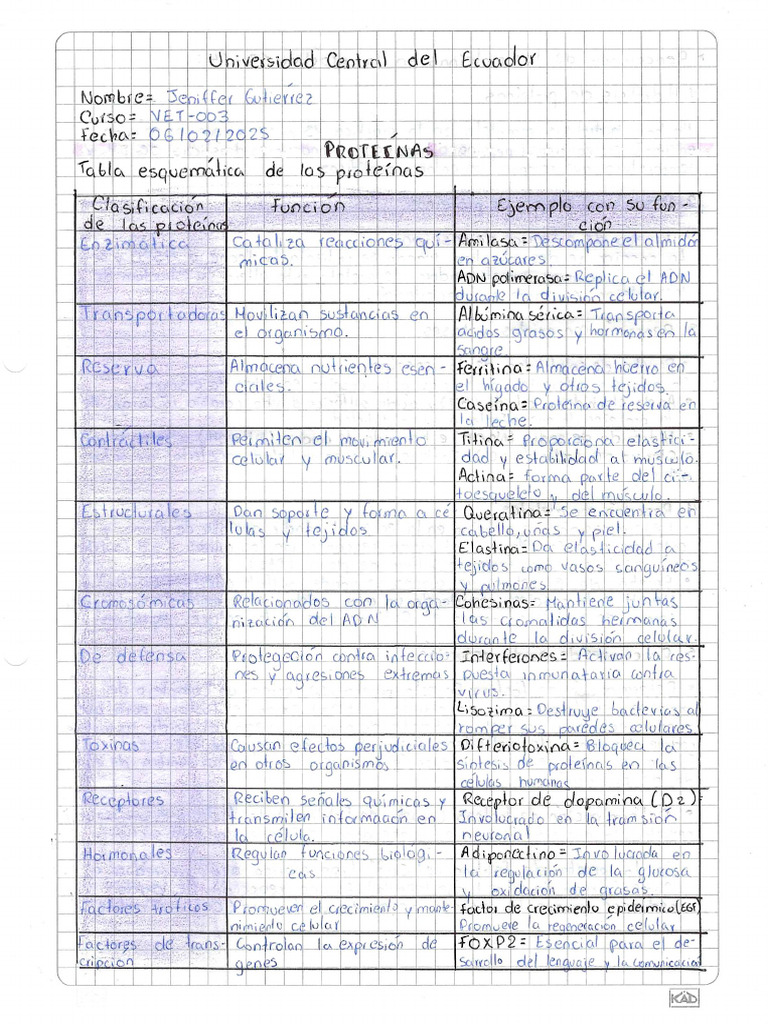 Universidad Central del Ecuador
Nombre= Jeniffer Gutierrez
Curso= VET-003
Fecha: 06/02/2025
PROTEÍNAS
Tabla esquemática de las proteínas
Clasificación
de las proteínas
Función
Ejemplo con su fun-
ción
Enzimática
Cataliza reacciones quí-
micas.
Amilasa= Descompone el almidón
en azúcares.
ADN polimerasa= Replica el ADN
durante la división celular.
Transportadoras
Movilizan sustancias en
el organismo.
Albúmina sérica= Transporta
ácidos grasos y hormonas en la
sangre.
Reserva
Almacena nutrientes esen-
ciales.
Ferritina= Almacena hierro en
el hígado y otros tejidos.
Caseína= Proteína de reserva en
la leche.
Contráctiles
Permiten el movimiento
celular y muscular.
Titina= Proporciona elastici-
dad y estabilidad al músculo.
Actina= forma parte del ci-
toesqueleto y del músculo.
Estructurales
Dan soporte y forma a cé
lulas y tejidos
Queratina= Se encuentra en
cabello, uñas y piel.
Elastina= Da elasticidad a
tejidos como vasos sanguíneos
y pulmones.
Cromosómicas
Relacionados con la orga-
nización del ADN
Cohesinas= Mantiene juntas
las cromatidas hermanas
durante la división celular.
De defensa
Protegeción contra infeccio-
nes y agresiones extremas
Interferones= Activan la res-
puesta inmunataria contra
virus.
Lisozima= Destruye bacterias al
romper sus paredes celulares
Toxinas
Causan efectos perjudiciales
en otros organismos
Difteriotoxina= Bloquea la
síntesis de proteínas en las
células humanas
Receptores
Reciben señales químicas y
transmiten información en
la célula.
Receptor de dopamina (D2)=
Involucrado en la tramsión
neuronal
Hormonales
Regulan funciones biologi-
cas
Adiponectino= Involucrada en
la regulación de la glucosa
y oxidación de grasas.
Factores tróficos
Promueven el crecimiento y mante-
nimiento celular
factor de crecimiento epidérmico (EGF)
Promueve la regeneración celular
Factores de trans-
cripción
Controlan la expresión de
genes
FOXP2= Esencial para el de-
sarrollo del lenguaje y la comunicación
KAD